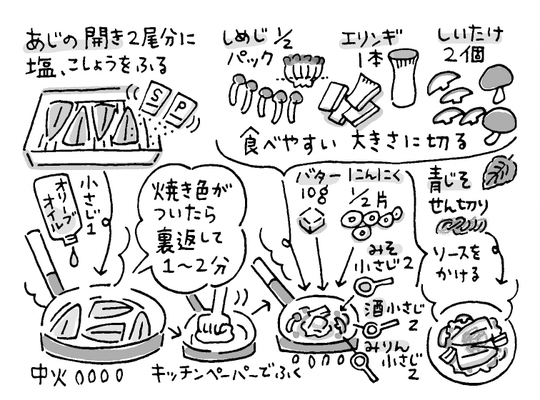 あじの開き2尾分に
塩、こしょうをふる
S P
しめじ 1/2
パック
エリンギ
1本
しいたけ
2個
食べやすい 大きさに切る
オリーブ
オイル
小さじ1
焼き色が
ついたら
裏返して
1〜2分
中火
キッチンペーパーでふく
バター
10g
にんにく
1/2片
みそ
小さじ2
酒小さじ
2
みりん
小さじ
2
青じそ
せん切り
ソースを
かける